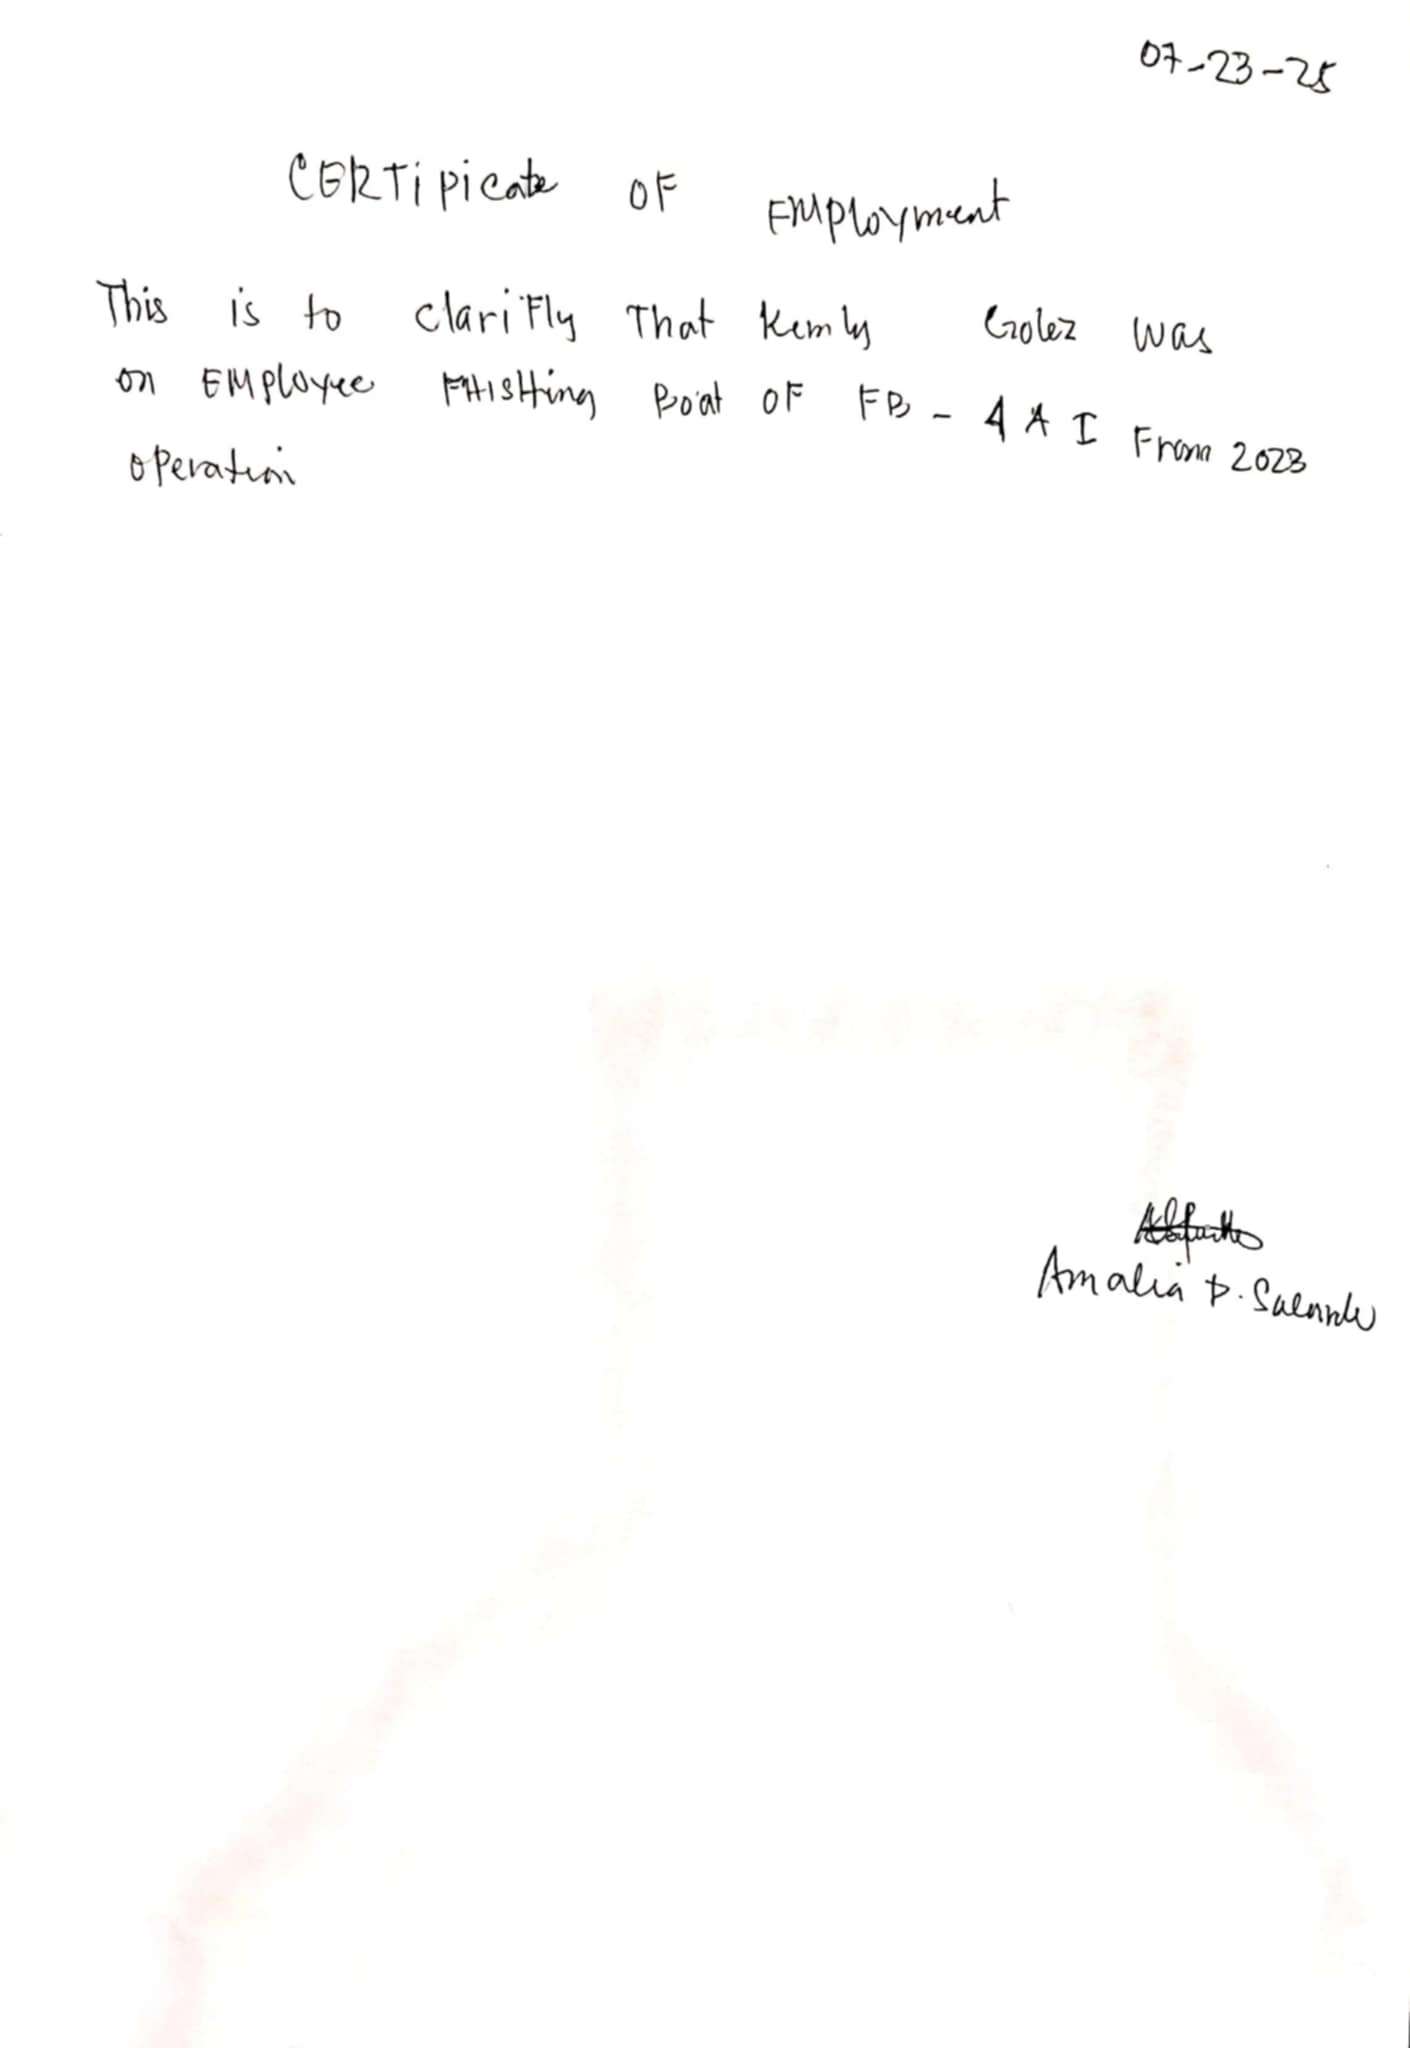 07-23-25
CERTipicate OF EMployment
This is to clariFly That Kemly Golez was
on EMployee FHISHing Boat OF FB - 4 A I From 2023
operation
Amalia D.